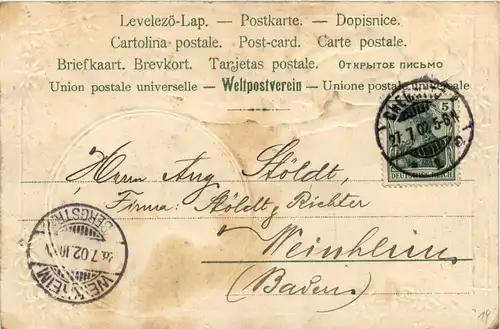 Levelezö-Lap. — Postkarte. — Dopisnice.
Cartolina postale. Post-card. Carte postale.
Briefkaart. Brevkort. Tarjetas postale. ОТКРЫТОЕ ПИСЬМО
Union postale universelle — Weltpostverein — Unione postale universale
5
27.7.02.
DEUTSCHES REICH
Herrn Aug Stöldt,
Firma: Stöldt & Richter
Weinheim
(Baden)
WEINHEIM
7.02.10
BERGSTR.
19